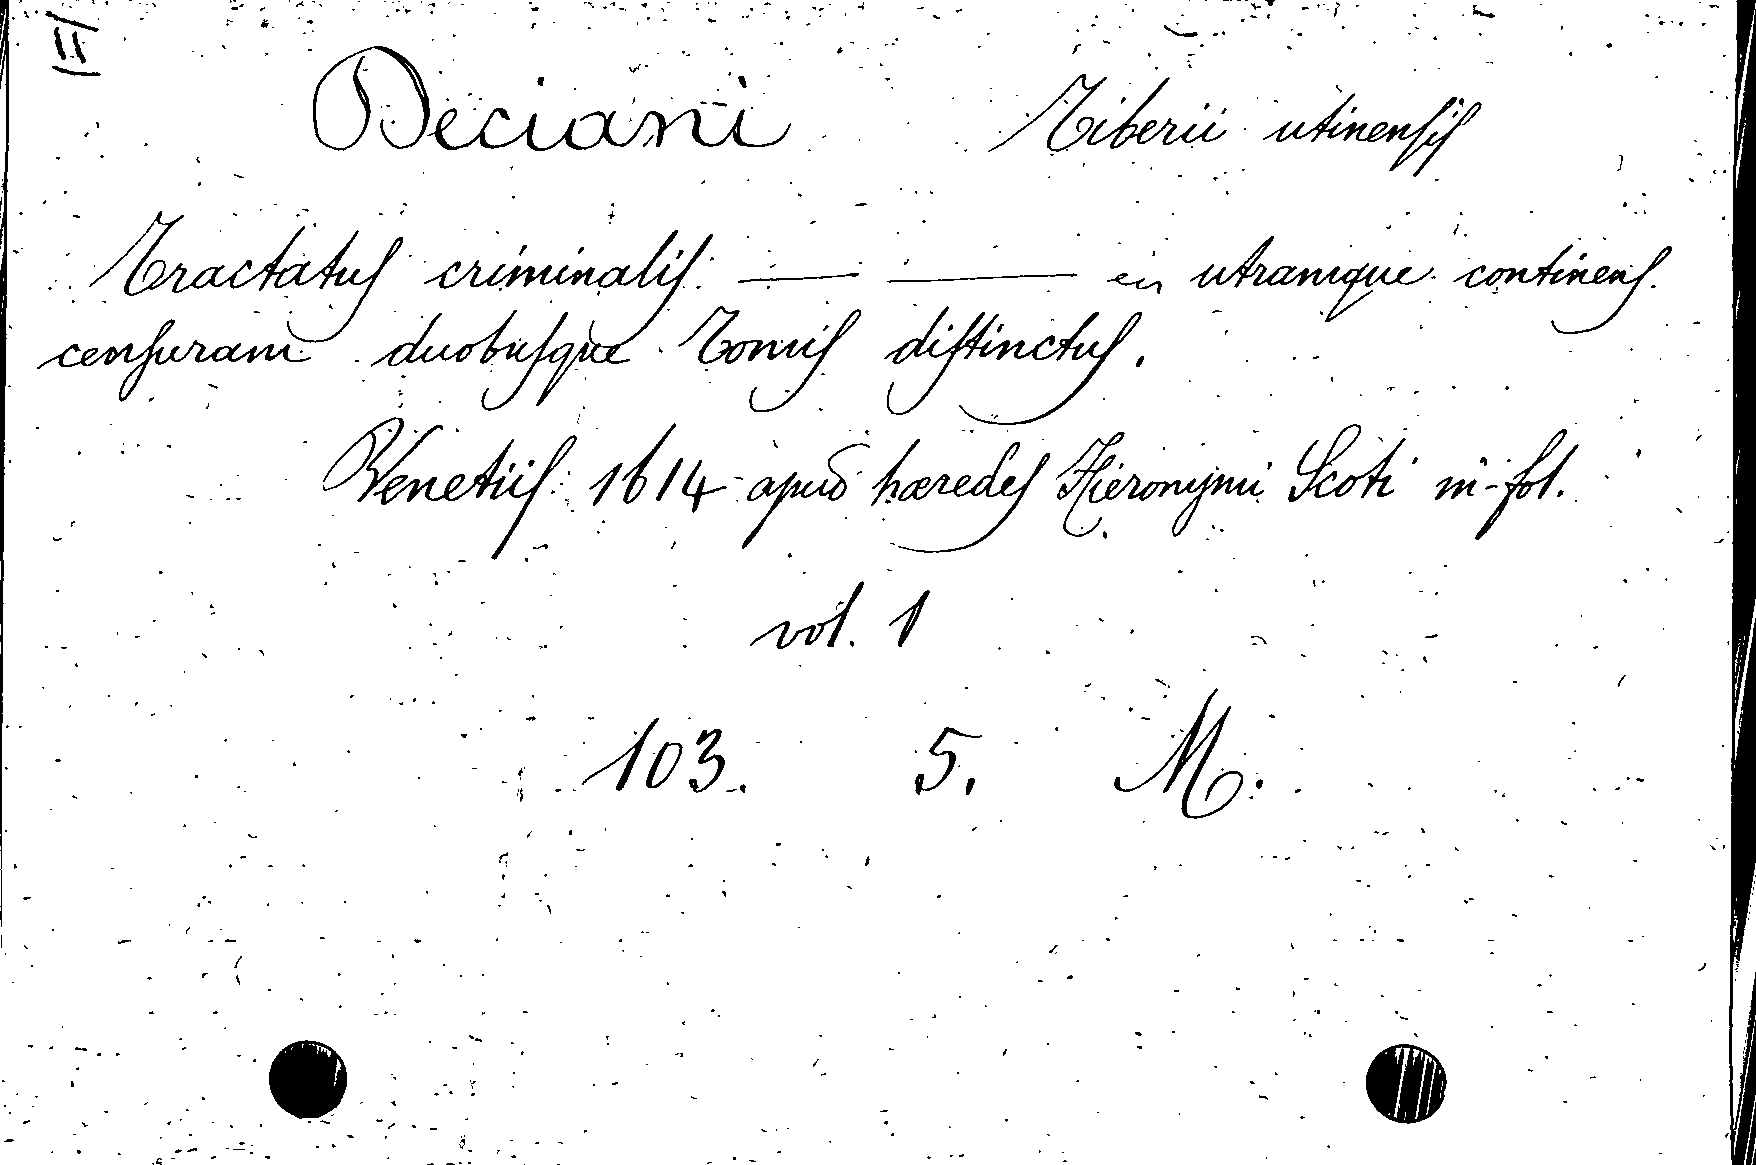 Deciani Tiberii utinensis
Tractatus criminalis — — in utramque continens
censuram duobusque Tomis distinctus.
Venetiis 1614 apud hæredes Hieronymi Scoti in-fol.
vol. 1
103. 5. M.